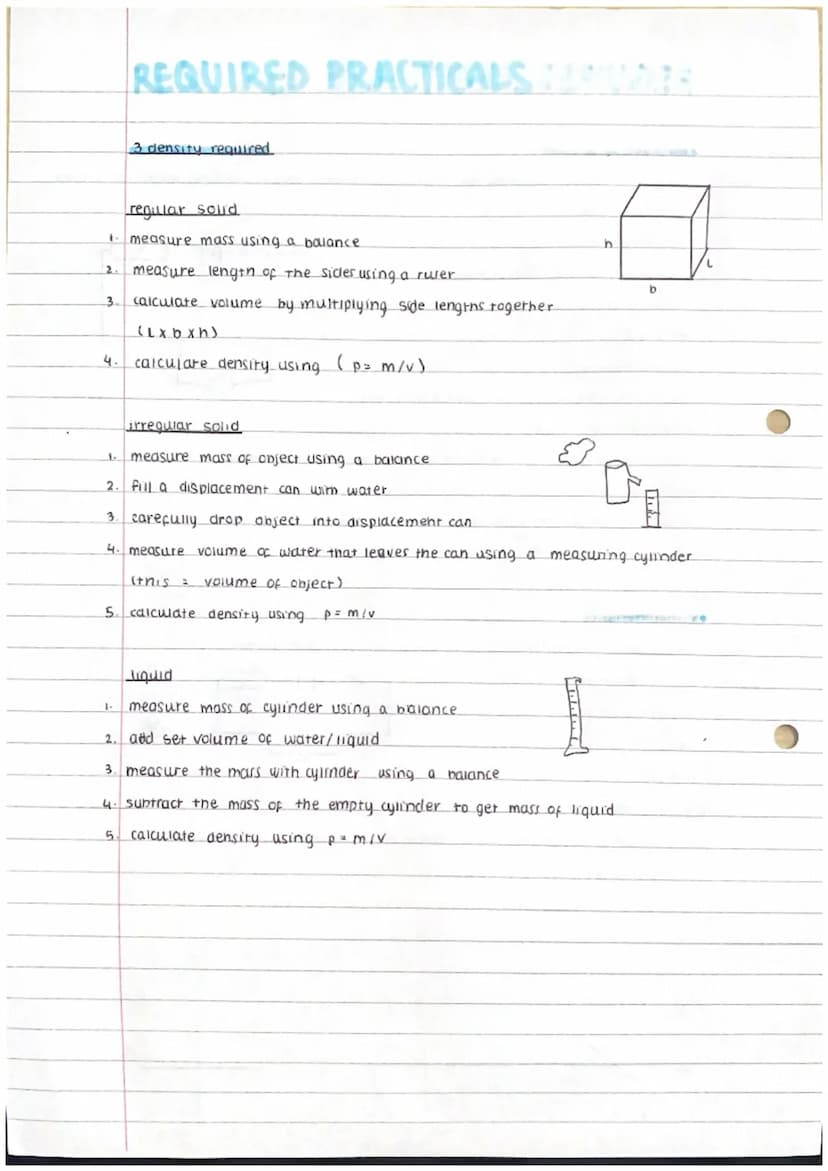 REQUIRED PRACTICALS
3 density required
regular solid
1. measure mass using a balance
2. measure length of the sides using a ruler
3. calculate volume by multiplying side lengths together
(L x b x h)
4. calculate density using (p = m/v)
h
L
b
irregular solid
1. measure mass of object using a balance
2. fill a displacement can with water
3. carefully drop object into displacement can
4. measure volume of water that leaves the can using a measuring cylinder
(this = volume of object)
5. calculate density using p = m/v
liquid
1. measure mass of cylinder using a balance
2. add set volume of water/liquid
3. measure the mass with cylinder using a balance
4. subtract the mass of the empty cylinder to get mass of liquid
5. calculate density using p = m/v